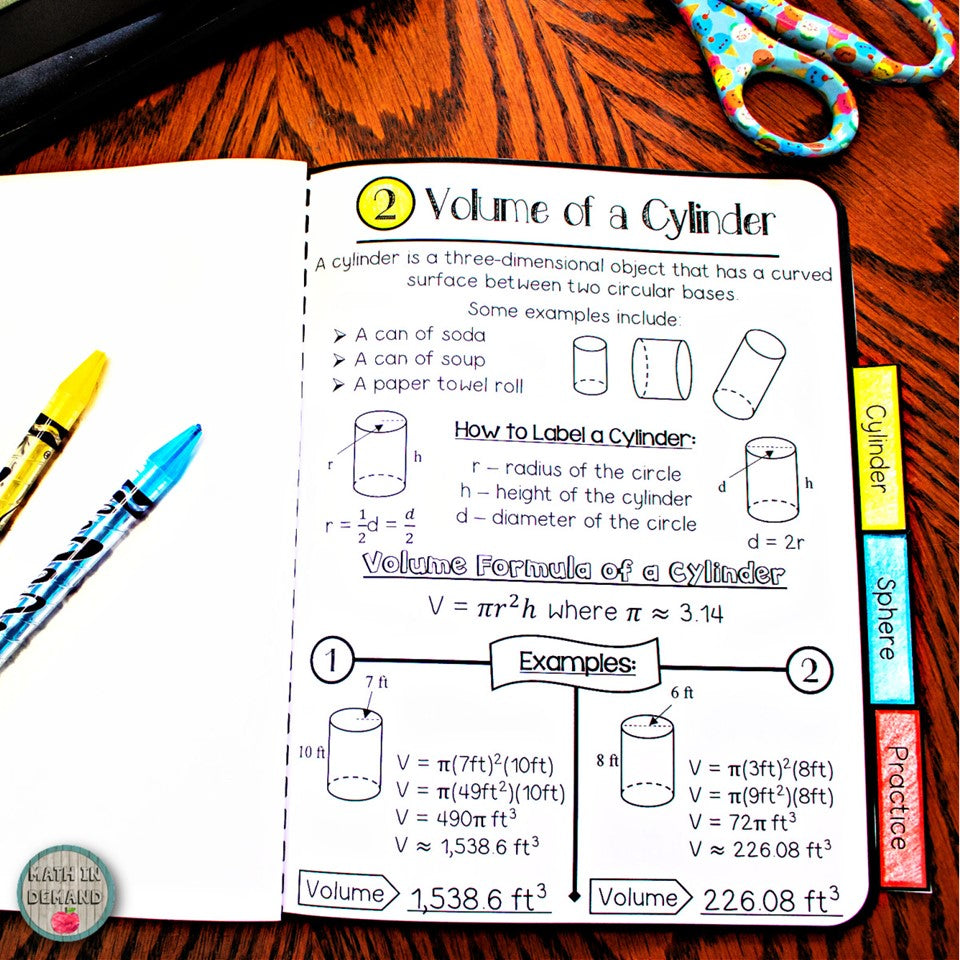 2 Volume of a Cylinder
A cylinder is a three-dimensional object that has a curved
surface between two circular bases.
Some examples include:
➢ A can of soda
➢ A can of soup
➢ A paper towel roll
How to Label a Cylinder:
r – radius of the circle
h – height of the cylinder
d – diameter of the circle
r
h
r = 1/2d = d/2
d
h
d = 2r
Volume Formula of a Cylinder
V = πr²h where π ≈ 3.14
Examples:
1
7 ft
10 ft
V = π(7ft)²(10ft)
V = π(49ft²)(10ft)
V = 490π ft³
V ≈ 1,538.6 ft³
Volume 1,538.6 ft³
2
6 ft
8 ft
V = π(3ft)²(8ft)
V = π(9ft²)(8ft)
V = 72π ft³
V ≈ 226.08 ft³
Volume 226.08 ft³
Cylinder
Sphere
Practice
MATH IN
DEMAND